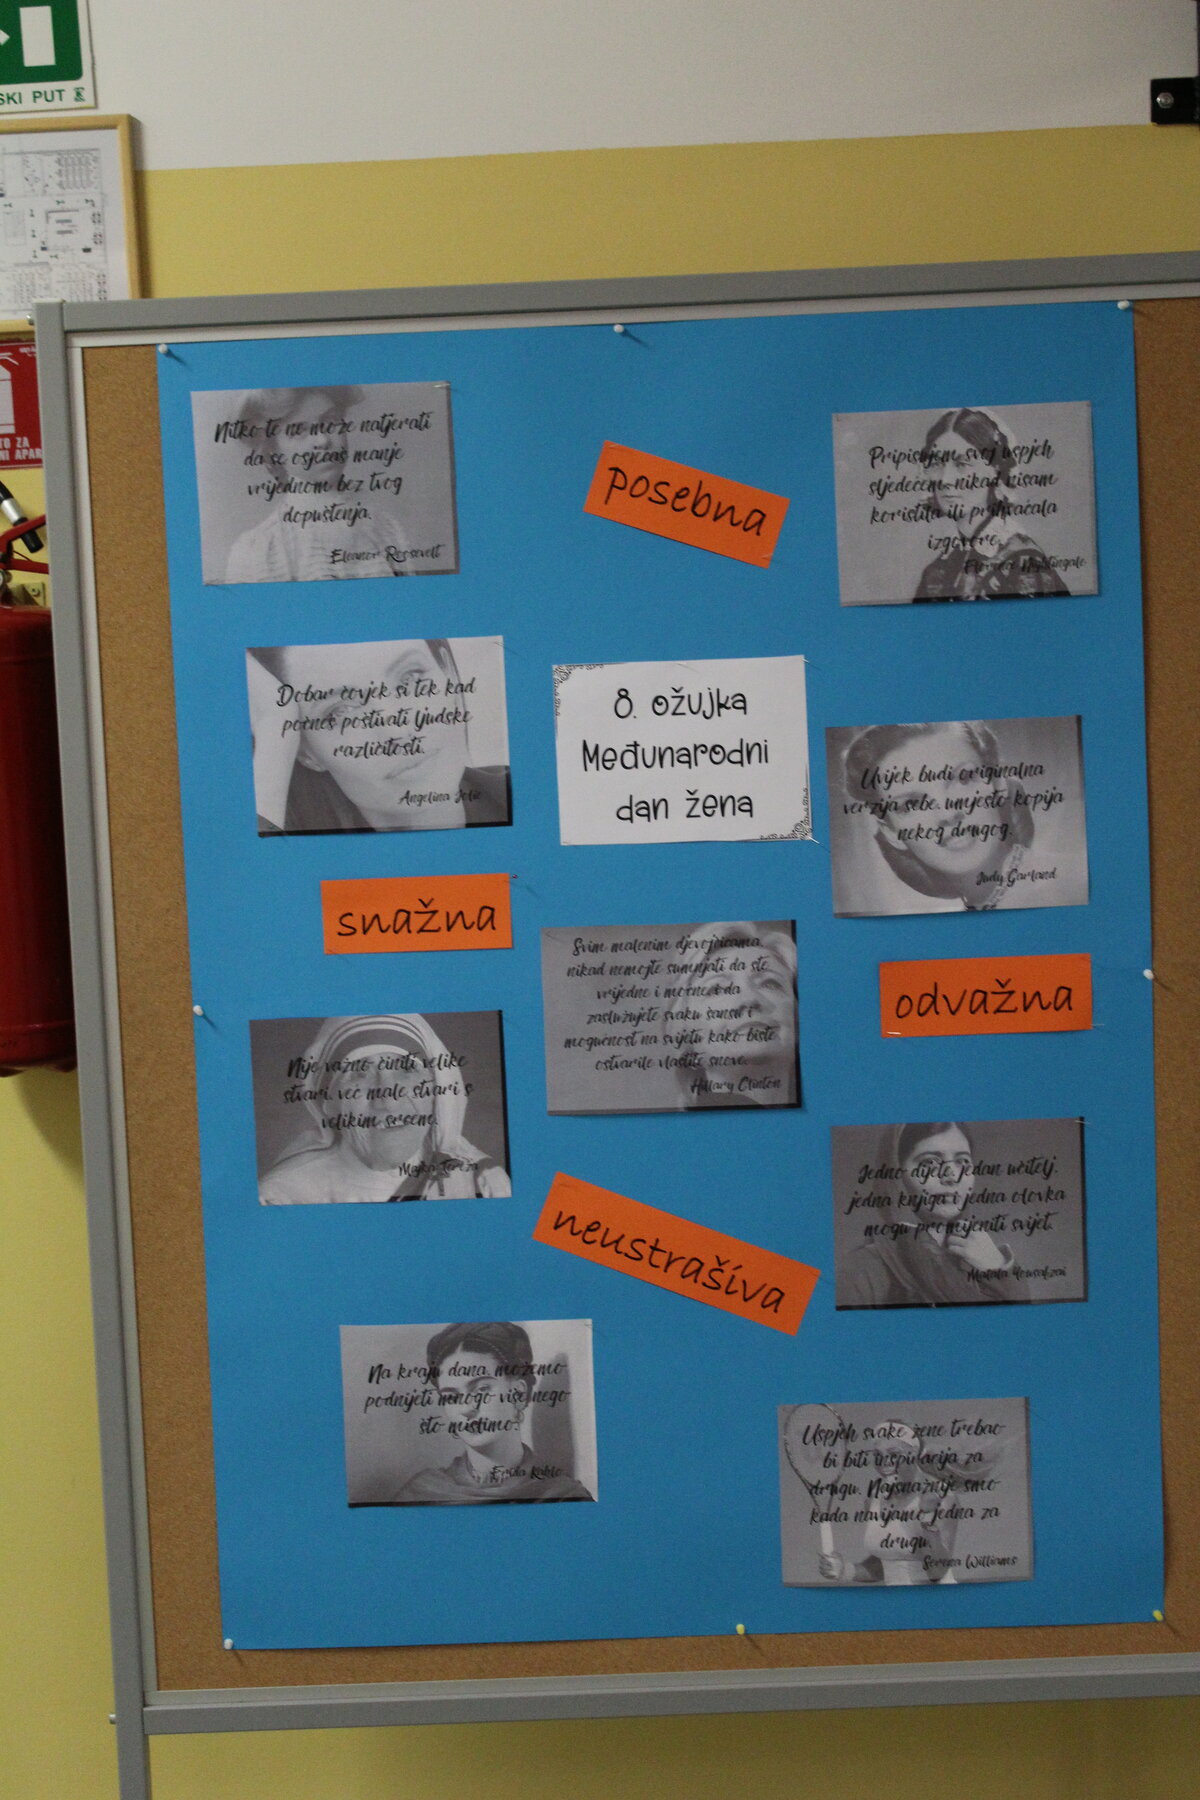 SKI PUT
TO ZA
NI APAR
Nitko te ne može natjerati
da se osjećaš manje
vrijednom bez tvog
dopuštenja.
Eleanor Roosevelt
posebna
Pripisujem svoj uspjeh
sljedećem, nikad nisam
koristila ili prihvaćala
izgovore.
Florence Nightingale
Dobar čovjek si tek kad
počneš poštivati ljudske
različitosti.
Angelina Jolie
8. ožujka
Međunarodni
dan žena
Uvijek budi originalna
verzija sebe, umjesto kopija
nekog drugog.
Judy Garland
snažna
Svim malenim djevojčicama,
nikad nemojte sumnjati da ste
vrijedne i moćne, i da
zaslužujete svaku šansu i
mogućnost na svijetu kako biste
ostvarile vlastite snove.
Hillary Clinton
odvažna
Nije važno činiti velike
stvari, već male stvari s
velikim srcem.
Majka Tereza
neustrašiva
Jedno dijete, jedan učitelj,
jedna knjiga i jedna olovka
mogu promijeniti svijet.
Malala Yousafzai
Na kraju dana, možemo
podnijeti mnogo više nego
što mislimo.
Frida Kahlo
Uspjeh svake žene trebao
bi biti inspiracija za
drugu. Najsnažnije smo
kada navijamo jedna za
drugu.
Serena Williams